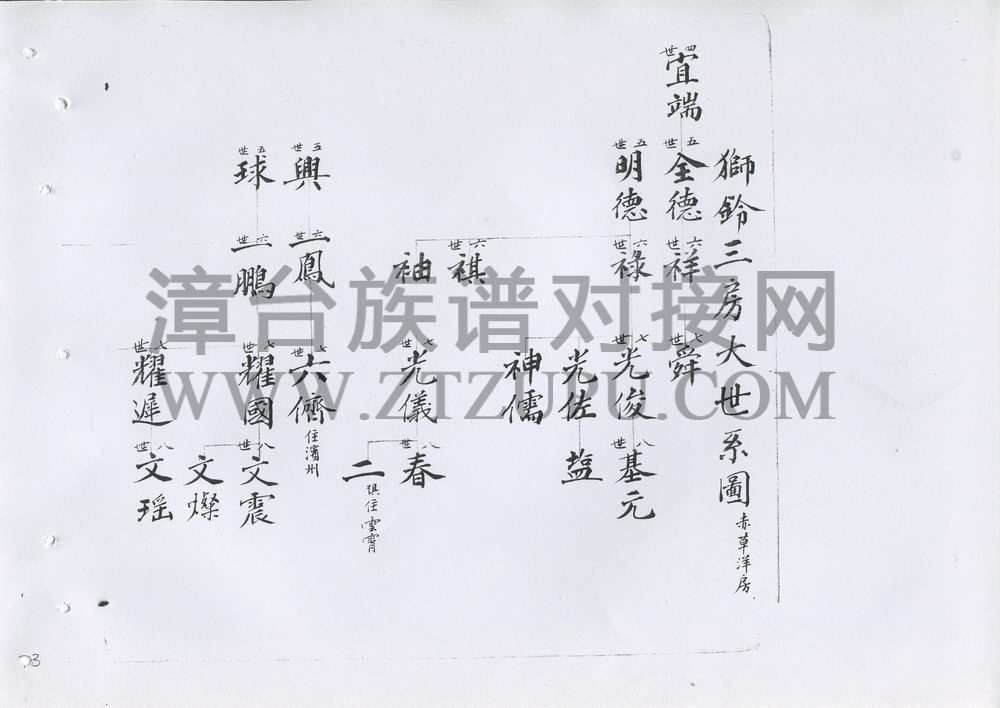 獅鈴三房大世系圖 赤草洋房
四世 宜端
五世 全德
六世 祥
七世 舜
五世 明德
六世 祿
七世 光俊
八世 基元
光佐
塩
神儒
六世 祺
袖
七世 光儀
八世 春
二 俱住雲霄
五世 興
六世 一鳳
七世 六儕 住濱州
五世 球
六世 一鵬
七世 耀國
八世 文震
文燦
七世 耀遲
八世 文瑶
漳台族谱对接网
WWW.ZTZUPU.COM
73